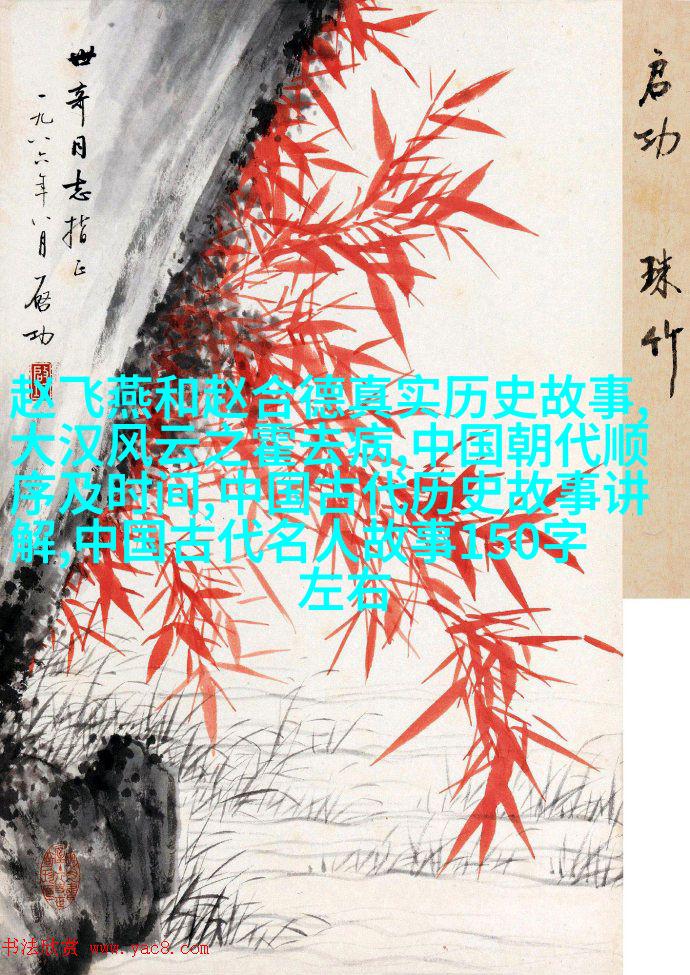 世奇同志指正
一九八六年八月 启功
启功 珠竹
赵飞燕和赵合德真实历史故事,
大汉风云之霍去病,中国朝代顺
序及时间,中国古代历史故事讲
解,中国古代名人故事150字
左右
书法欣赏 www.yac8.com